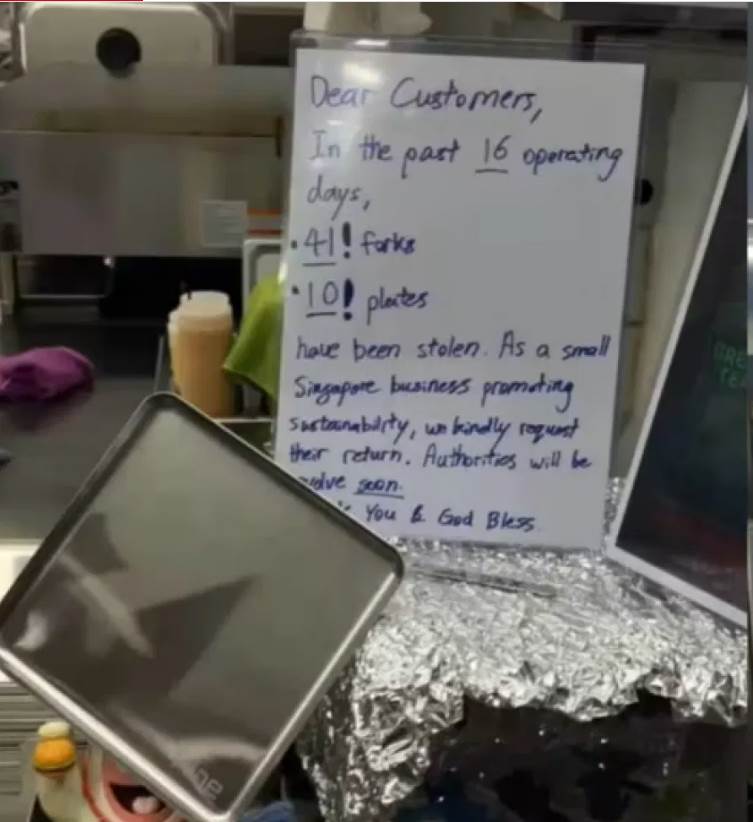 Dear Customers,
In the past 16 operating
days,
• 41! forks
• 10! plates
have been stolen. As a small
Singapore business promoting
sustainability, we kindly request
their return. Authorities will be
soon.
You & God Bless